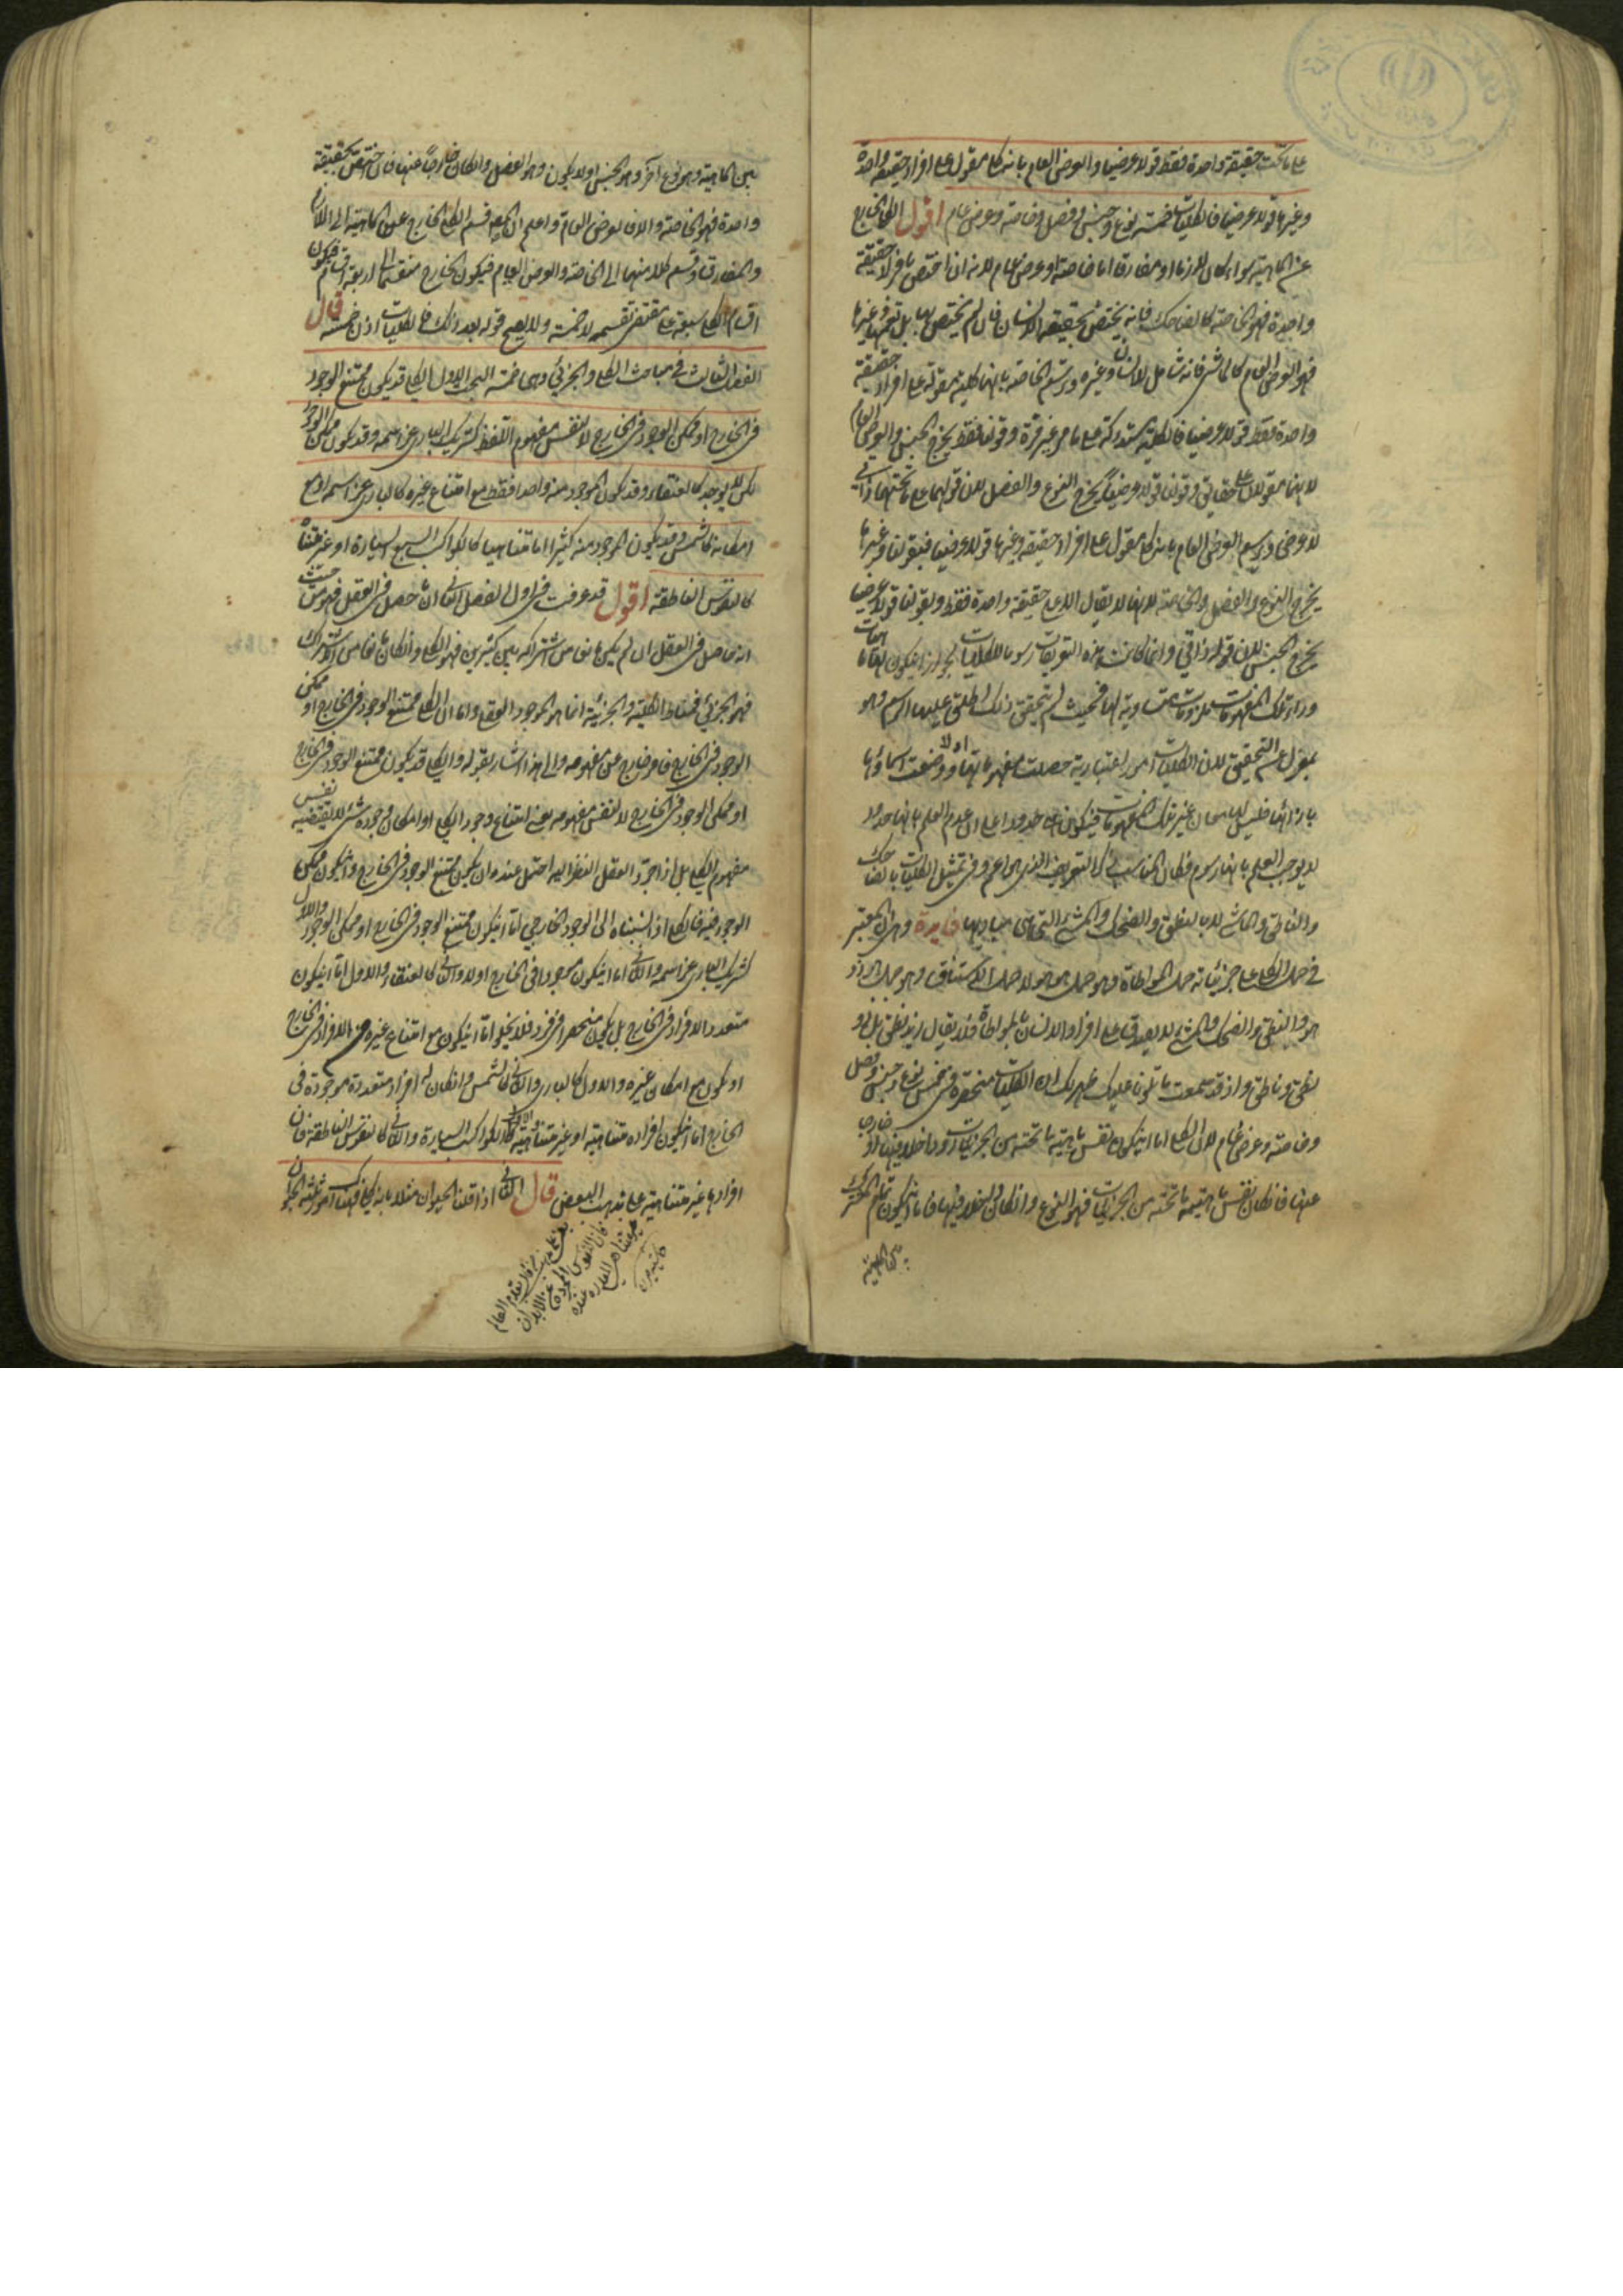 على ما تحت حقيقة واحدة فقط قولا عرضيا والعرض العام بانه كلى مقول على افراد حقيقة واحدة
وغيرها قولا عرضيا فالكليات خمسة نوع وجنس وفصل وخاصة وعرض عام اقول الكلى الخارج
عن الماهية سواء كان لازما او مفارقا اما خاصة او عرض عام لانه ان اختص بافراد حقيقة
واحدة فهو الخاصة كالضاحك فانه يختص بحقيقة الانسان فان لم يختص بها بل يعمها وغيرها
فهو العرض العام كالماشى فانه شامل للانسان وغيره ورسم الخاصة بانها كلية مقولة على افراد حقيقة
واحدة فقط قولا عرضيا فالكلية مستدركة على ما مر غير مرة وقولنا فقط يخرج الجنس والعرض العام
لانهما مقولان على حقائق وقولنا قولا عرضيا يخرج النوع والفصل لان قولهما على ما تحتهما ذاتى
لا عرضى ورسم العرض العام بانه كلى مقول على افراد حقيقة وغيرها قولا عرضيا فبقولنا وغيرها
يخرج النوع والفصل والخاصة لانها لا يقال الا على حقيقة واحدة فقط وبقولنا قولا عرضيا
يخرج الجنس لان قوله ذاتى وانما كانت هذه التعريفات رسوما للكليات لجواز ان يكون لها ماهيات
وراء تلك المفهومات ملزومات مساوية لها فحيث لم يتحقق ذلك اطلق عليها اسم الرسم وهو
بمعزل عن التحقيق لان الكليات امور اعتبارية حصلت مفهوماتها اولا ووضعت اسماؤها
بازائها فليس لها معان غير تلك المفهومات فيكون هى حدودا على ان عدم العلم بانها حدود
لا يوجب العلم بانها رسوم فكان المناسب ذكر التعريف الذى هو اعم وفى تمثيل الكليات بالضاحك
والناطق والماشى لا بالنطق والضحك والمشى التى هى مباديها فايدة وهى ان المعتبر
فى حمل الكلى على جزئياته حمل المواطاة وهو حمل هو هو لا حمل الاشتقاق وهو حمل هو ذو
هو والنطق والضحك والمشى لا يصدق على افراد الانسان بالمواطاة فلا يقال زيد نطق بل ذو
نطق وناطق واذ قد سمعت ما تلونا عليك ظهر لك ان الكليات منحصرة فى خمس نوع وجنس وفصل
وخاصة وعرض عام لان الكلى اما ان يكون نفس ماهية ما تحته من الجزئيات او داخلا فيها او خارجا
عنها فان كان نفس ماهية ما تحته من الجزئيات فهو النوع وان كان داخلا فيها فاما ان يكون تمام المشترك
بين الماهية
بين الماهية وبين نوع اخر وهو الجنس او لا يكون وهو الفصل وان كان خارجا عنها فان اختص بحقيقة
واحدة فهو الخاصة والا فالعرض العام واعلم ان المص قسم الكلى الخارج عن الماهية الى اللازم
والمفارق وقسم كلا منهما الى الخاصة والعرض العام فيكون الخارج منقسما الى اربعة اقسام فيكون
اقسام الكلى سبعة على مقتضى تقسيمه لا خمسة ولا يصح قوله بعد ذلك فالكليات اذن خمسة قال
الفصل الثالث فى مباحث الكلى والجزئى وهى خمسة البحث الاول الكلى قد يكون ممتنع الوجود
فى الخارج او ممكن الوجود فى الخارج لا لنفس مفهوم اللفظ كشريك البارى عز اسمه وقد يكون ممكن الوجود
لكن لا يوجد كالعنقاء وقد يكون الموجود منه واحدا فقط مع امتناع غيره كالبارى عز اسمه او مع
امكانه كالشمس وقد يكون الموجود منه كثيرا اما متناهيا كالكواكب السبع السيارة او غير متناه
كالنفوس الناطقة اقول قد عرفت فى اول الفصل الثانى ان ما حصل فى العقل فهو من حيث
انه حاصل فى العقل ان لم يكن مانعا من اشتراكه بين كثيرين فهو الكلى وان كان مانعا من الاشتراك
فهو الجزئى فمناط الكلية والجزئية انما هو الموجود العقلى واما ان الكلى ممتنع الوجود فى الخارج او ممكن
الوجود فى الخارج فامر خارج عن مفهومه والى هذا اشار بقوله والكلى قد يكون ممتنع الوجود فى الخارج
او ممكن الوجود فى الخارج لا لنفس مفهومه يعنى امتناع وجود الكلى او امكان وجوده شىء لا يقتضيه نفس
مفهوم الكلى بل اذا جرد العقل النظر اليه احتمل عنده ان يكون ممتنع الوجود فى الخارج وان يكون ممكن
الوجود فيه فالكلى اذا نسبناه الى الوجود الخارجى اما ان يكون ممتنع الوجود فى الخارج او ممكن الوجود والاول
كشريك البارى عز اسمه والثانى اما ان يكون موجودا فى الخارج او لا والثانى كالعنقاء والاول اما ان يكون
متعدد الافراد فى الخارج بل يكون منحصرا فى فرد فلا يخلو اما ان يكون مع امتناع غيره من الافراد فى الخارج
او يكون مع امكان غيره والاول كالبارى والثانى كالشمس وان كان له افراد متعددة موجودة فى
الخارج اما ان يكون افراده متناهية او غير متناهية والاول كالكواكب السيارة والثانى كالنفوس الناطقة فان
افرادها غير متناهية على مذهب البعض قال الثانى اذا قلنا للحيوان مثلا بانه كلى فهناك امور ثلثة الحيوان